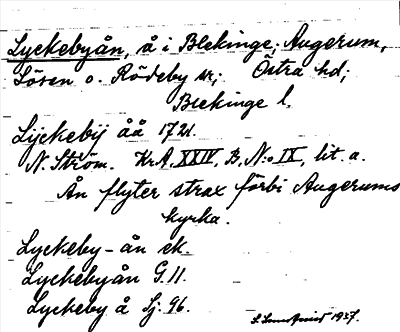 Lyckebyån, å i Blekinge; Augerum,
Lösen o. Rödeby sn; Östra hd;
Blekinge l.
Lÿckebÿ åå 1721.
N. Ström. Kr. A. XXIV, B, N:o IX, lit. a.
Ån flyter strax förbi Augerums
kyrka.
Lyckeby-ån ek.
Lyckebyån G. 11.
Lyckeby å Lj. 96.
1927.